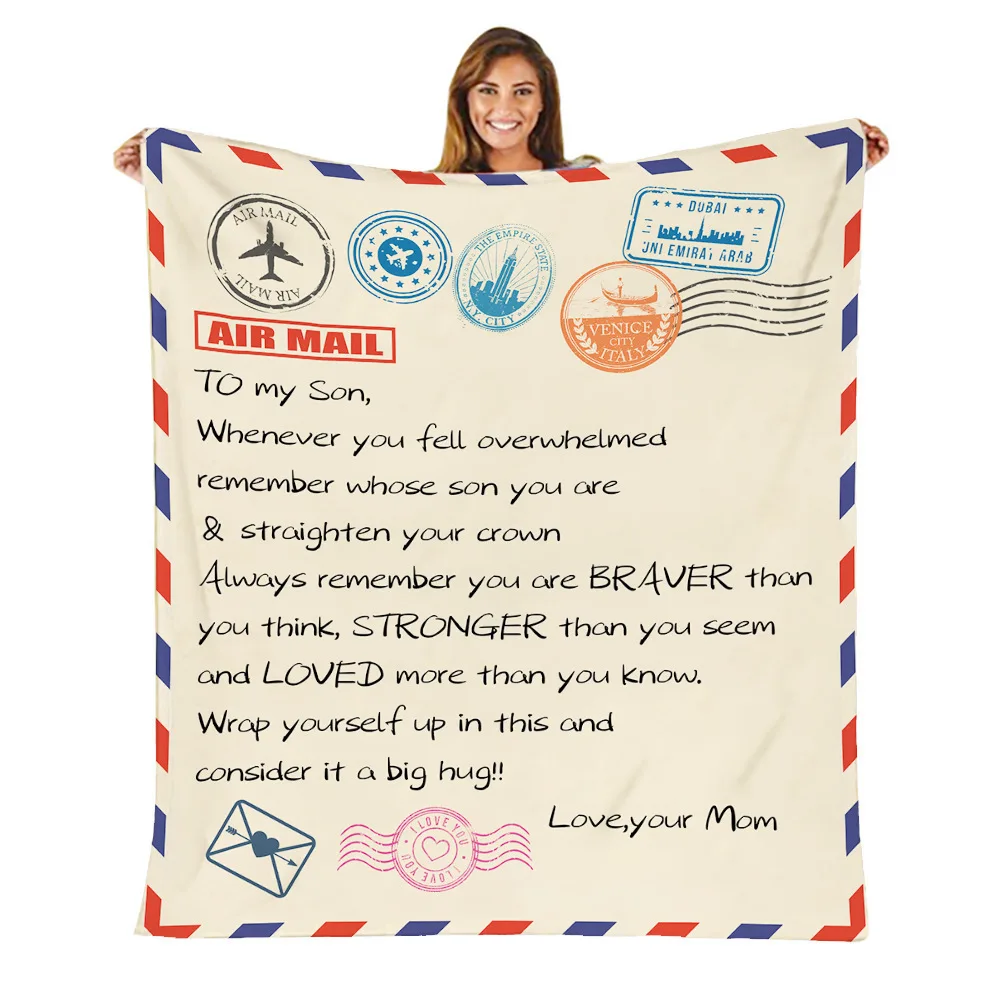 AIR MAIL
AIR MAIL
THE EMPIRE STATE
N.Y. CITY
DUBAI
UNI EMIRAT ARAB
VENICE
CITY
ITALY
AIR MAIL
TO my Son,
Whenever you fell overwhelmed
remember whose son you are
& straighten your crown
Always remember you are BRAVER than
you think, STRONGER than you seem
and LOVED more than you know.
Wrap yourself up in this and
consider it a big hug!!
Love,your Mom
I LOVE YOU
I LOVE YOU